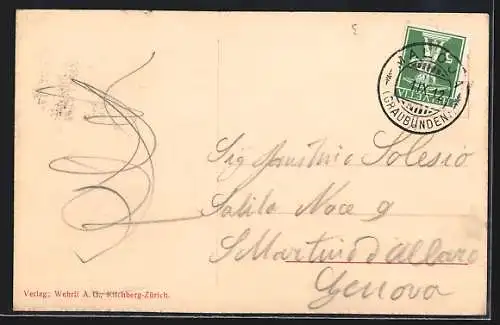 HELVETIA
(GRAUBÜNDEN)
Sig Faustino Solesio
Salita Noce 9
S Martino d'Albaro
Genova
Verlag: Wehrli A. G., Kilchberg-Zürich.